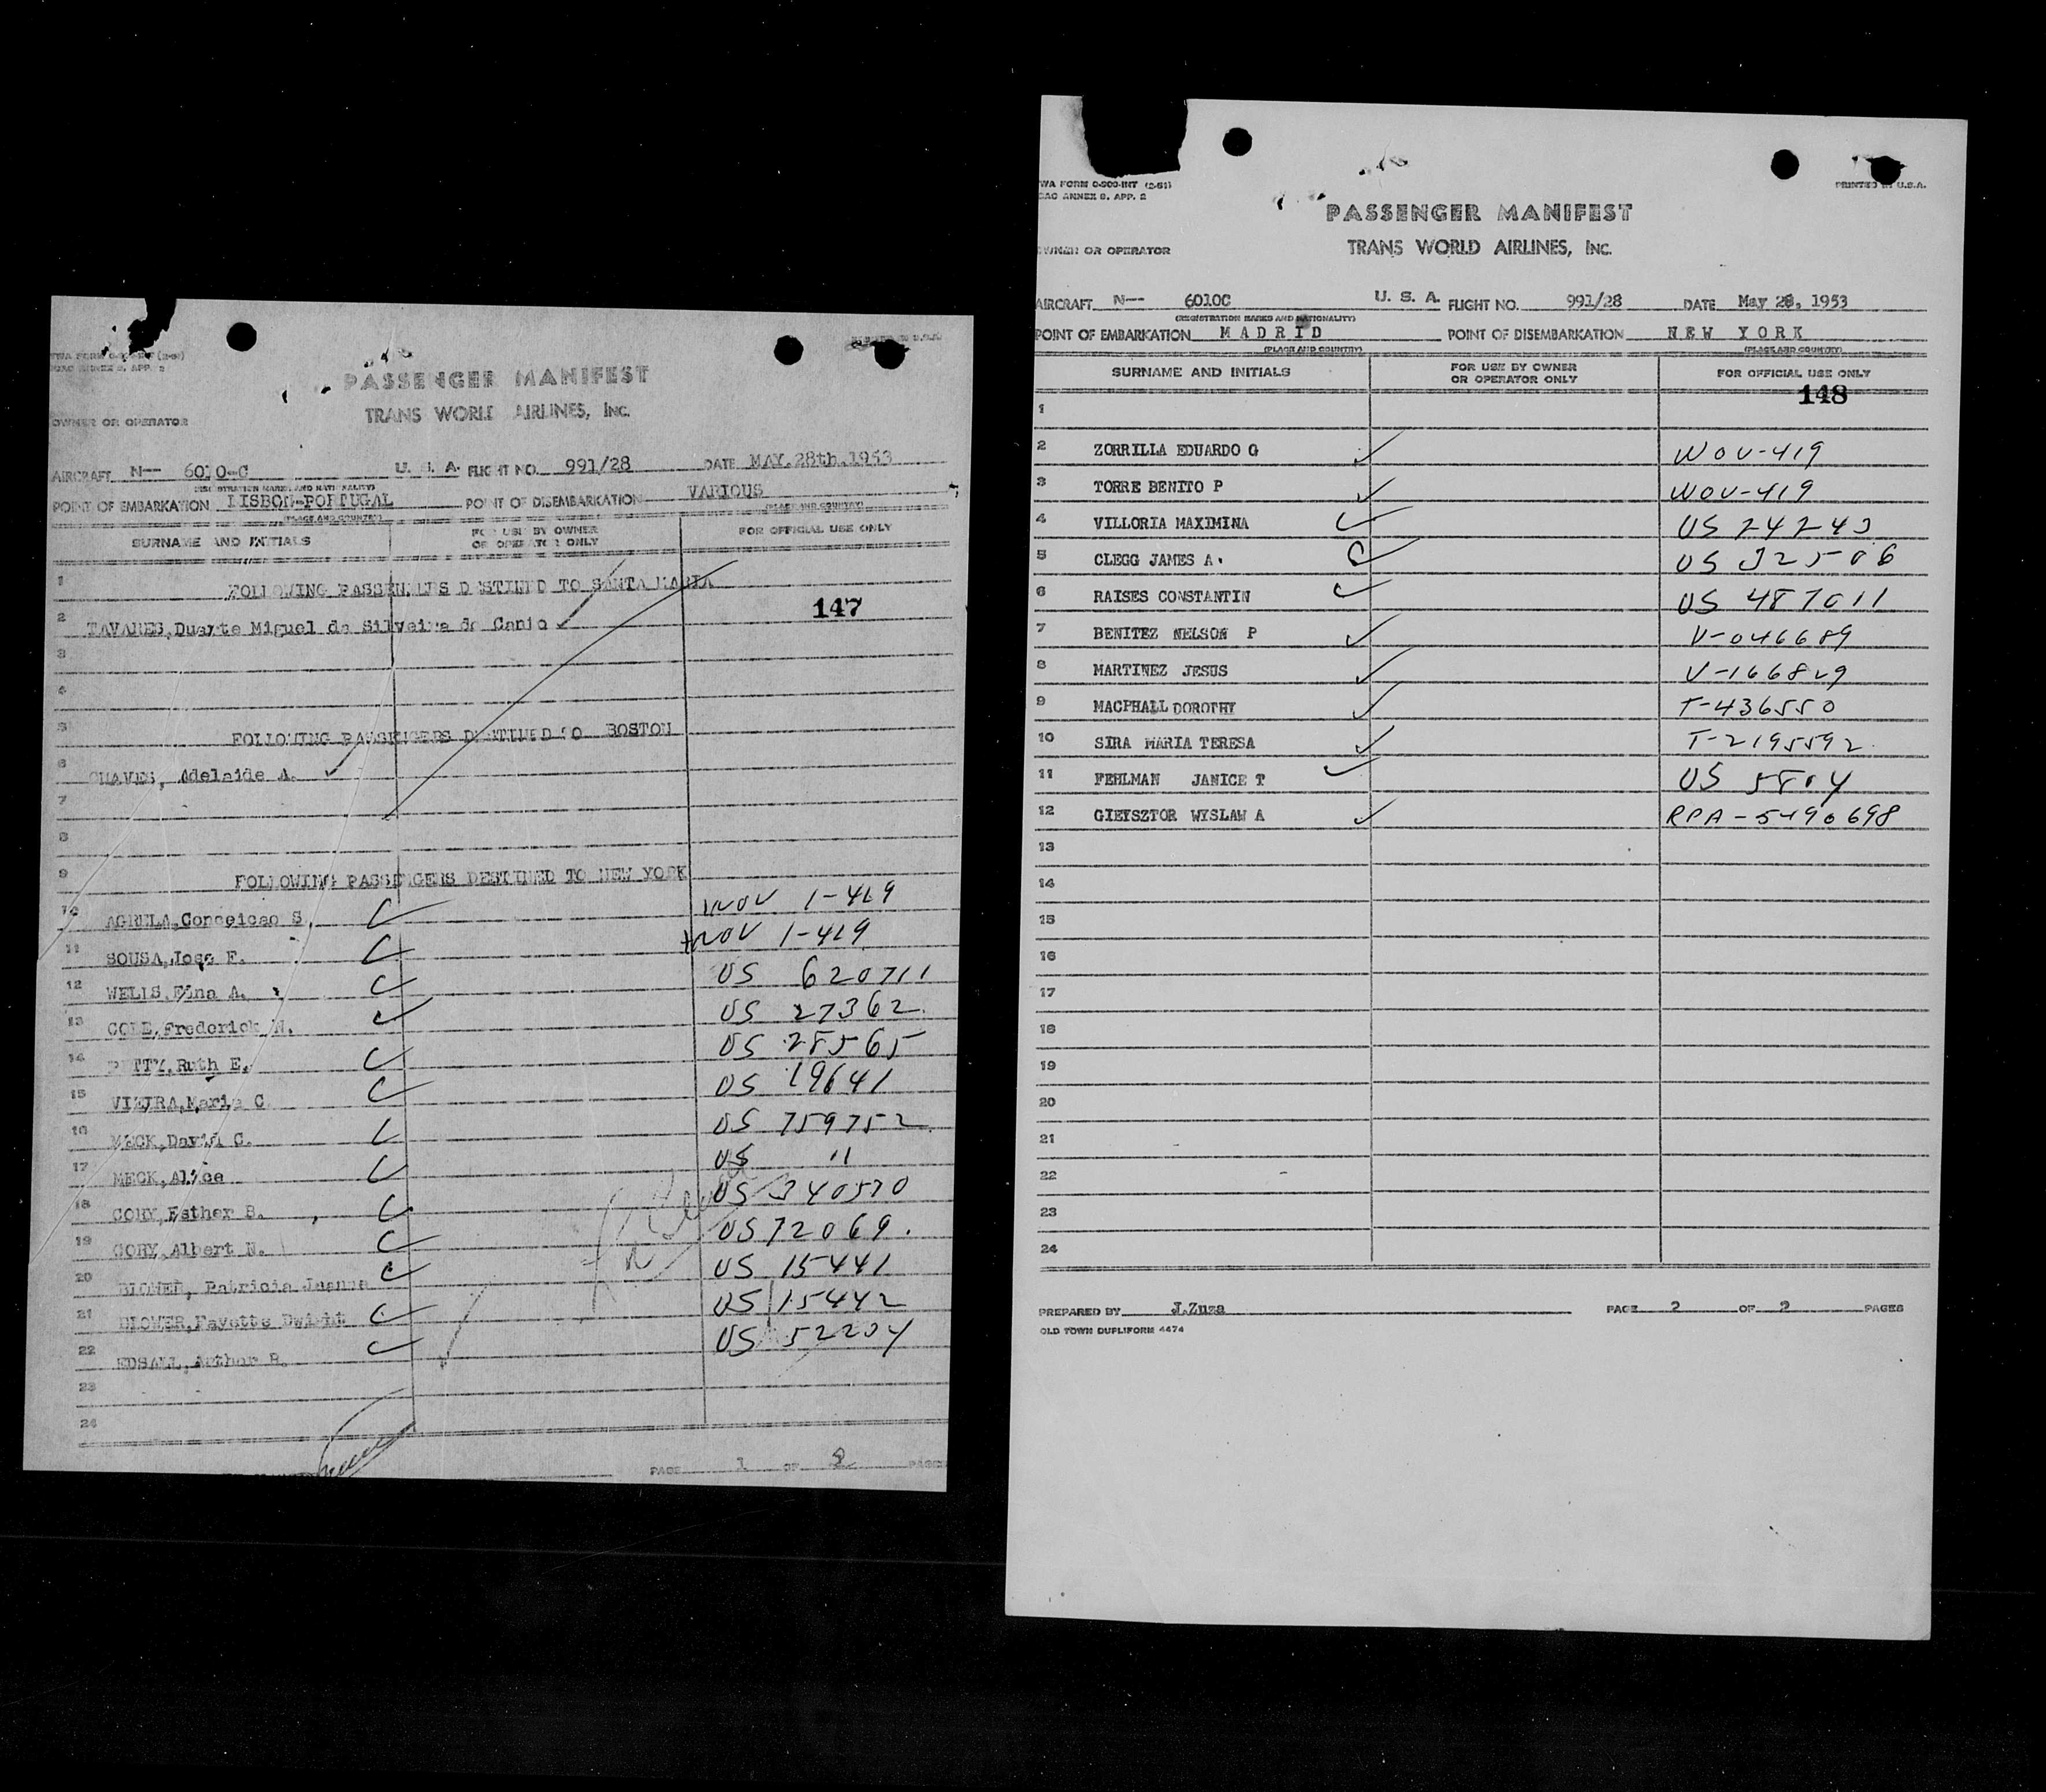 TWA FORM 0-900-INT (2-51)
PASSENGER MANIFEST
TRANS WORLD AIRLINES, INC.
OWNER OR OPERATOR
AIRCRAFT N-- 6010-C U. S. A. FLIGHT NO. 991/28 DATE MAY.28th.1953
(REGISTRATION MARKS AND NATIONALITY)
POINT OF EMBARKATION LISBON-PORTUGAL POINT OF DISEMBARKATION VARIOUS
(PLACE AND COUNTRY) (PLACE AND COUNTRY)
SURNAME AND INITIALS FOR USE BY OWNER OR OPERATOR ONLY FOR OFFICIAL USE ONLY
1 FOLLOWING PASSENGERS DESTINED TO SANTA MARIA
147
2 TAVARES,Duarte Miguel da Silveira do Canto
3
4
5 FOLLOWING PASSENGERS DESTINED TO BOSTON
6 CHAVES, Adelaide A.
7
8
9 FOLLOWING PASSENGERS DESTINED TO NEW YORK
10 AGRELA,Conceicao S. WOV 1-419
11 SOUSA,Jose F. WOV 1-419
12 WELLS,Edna A. US 620711
13 COLE,Frederick N. US 27362
14 PETTY,Ruth E. US 28565
15 VIEIRA,Maria C. US 19641
16 MECK,David C. US 759752
17 MECK,Alice US "
18 CORY,Esther B. US 340570
19 CORY,Albert N. US 72069.
20 BLOWER, Patricia Juanna US 15441
21 BLOWER,Fayette Dwight US 15442
22 EDSALL,Arthur B. US 52204
23
24
PAGE 1 OF 2 PAGES
TWA FORM 0-900-INT (2-51)
ICAO ANNEX 9. APP. 2
PRINTED IN U.S.A.
PASSENGER MANIFEST
TRANS WORLD AIRLINES, INC.
OWNER OR OPERATOR
AIRCRAFT N-- 6010C U. S. A. FLIGHT NO. 991/28 DATE May 28, 1953
(REGISTRATION MARKS AND NATIONALITY)
POINT OF EMBARKATION MADRID POINT OF DISEMBARKATION NEW YORK
(PLACE AND COUNTRY) (PLACE AND COUNTRY)
SURNAME AND INITIALS FOR USE BY OWNER OR OPERATOR ONLY FOR OFFICIAL USE ONLY
148
1
2 ZORRILLA EDUARDO G WOV-419
3 TORRE BENITO P WOV-419
4 VILLORIA MAXIMINA US 24243
5 CLEGG JAMES A. US 32506
6 RAISES CONSTANTIN US 487011
7 BENITEZ NELSON P V-046689
8 MARTINEZ JESUS V-166829
9 MACPHALL DOROTHY T-436550
10 SIRA MARIA TERESA T-2195592
11 FEHLMAN JANICE T US 5804
12 GIEYSZTOR WYSLAW A RPA-5490698
13
14
15
16
17
18
19
20
21
22
23
24
PREPARED BY J.Zuza PAGE 2 OF 2 PAGES
OLD TOWN DUPLIFORM 4474